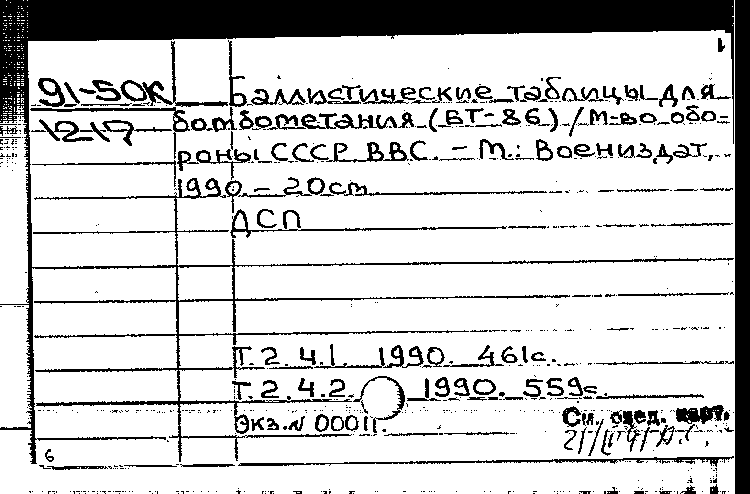 1
91-50К Баллистические таблицы для
1217 бомбометания (БТ-86) / М-во обо-
роны СССР. ВВС. – М.: Воениздат,
1990. – 20см
ДСП
Т.2. Ч.1. 1990. 461с.
Т.2. Ч.2. 1990. 559с.
Экз.N 00011.
См. след. карт.
6